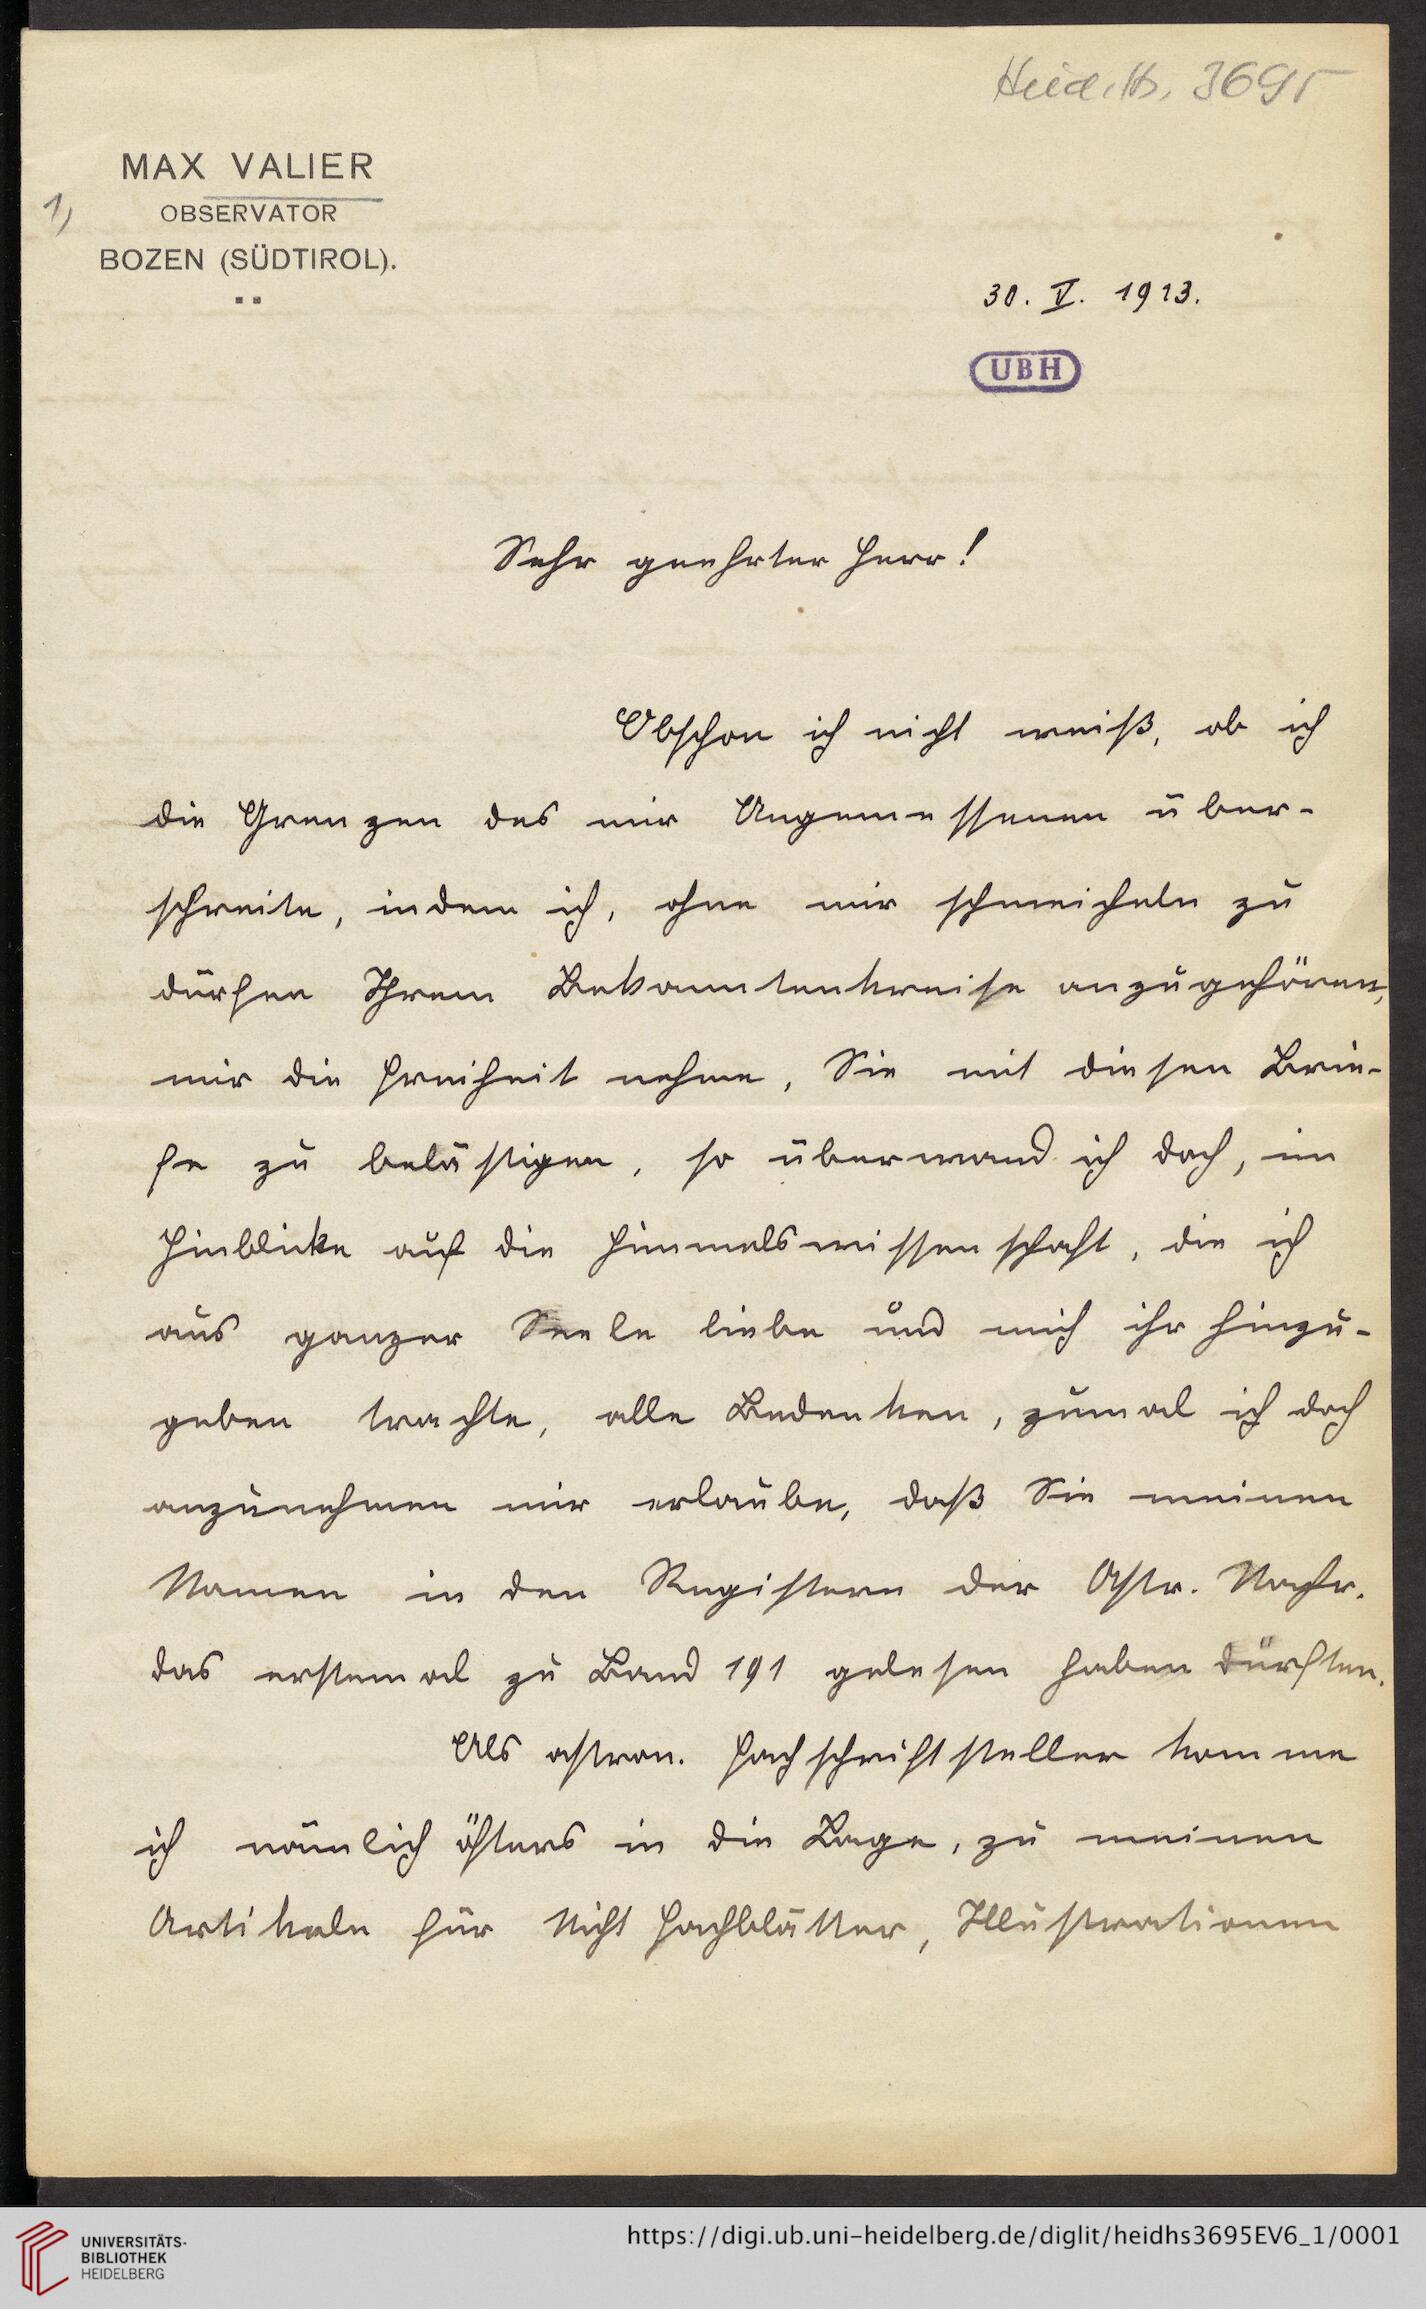 Heid. Hs. 3695
MAX VALIER
1)
OBSERVATOR
BOZEN (SÜDTIROL).
30. V. 1913.
UBH
Sehr geehrter Herr!
Obschon ich nicht weiß, ob ich
die Grenzen des mir Angemessenen über-
schreite, indem ich, ohne mir schmeicheln zu
dürfen Ihrem Bekanntenkreise anzugehören,
mir die Freiheit nehme, Sie mit diesen Brie-
fe zu belästigen, so überwand ich doch, im
Hinblicke auf die Himmelswissenschaft, die ich
aus ganzer Seele liebe und mich ihr hinzu-
geben trachte, alle Bedenken, zumal ich doch
anzunehmen mir erlaube, daß Sie meinen
Namen in den Registern der Astr. Nachr.
das erstemal zu Band 191 gelesen haben dürften.
Als astron. Fachschriftsteller komme
ich nämlich öfters in die Lage, zu meinen
Artikeln für Nicht Fachblätter, Illustrationen
UNIVERSITÄTS-
BIBLIOTHEK
HEIDELBERG
https://digi.ub.uni-heidelberg.de/diglit/heidhs3695EV6_1/0001